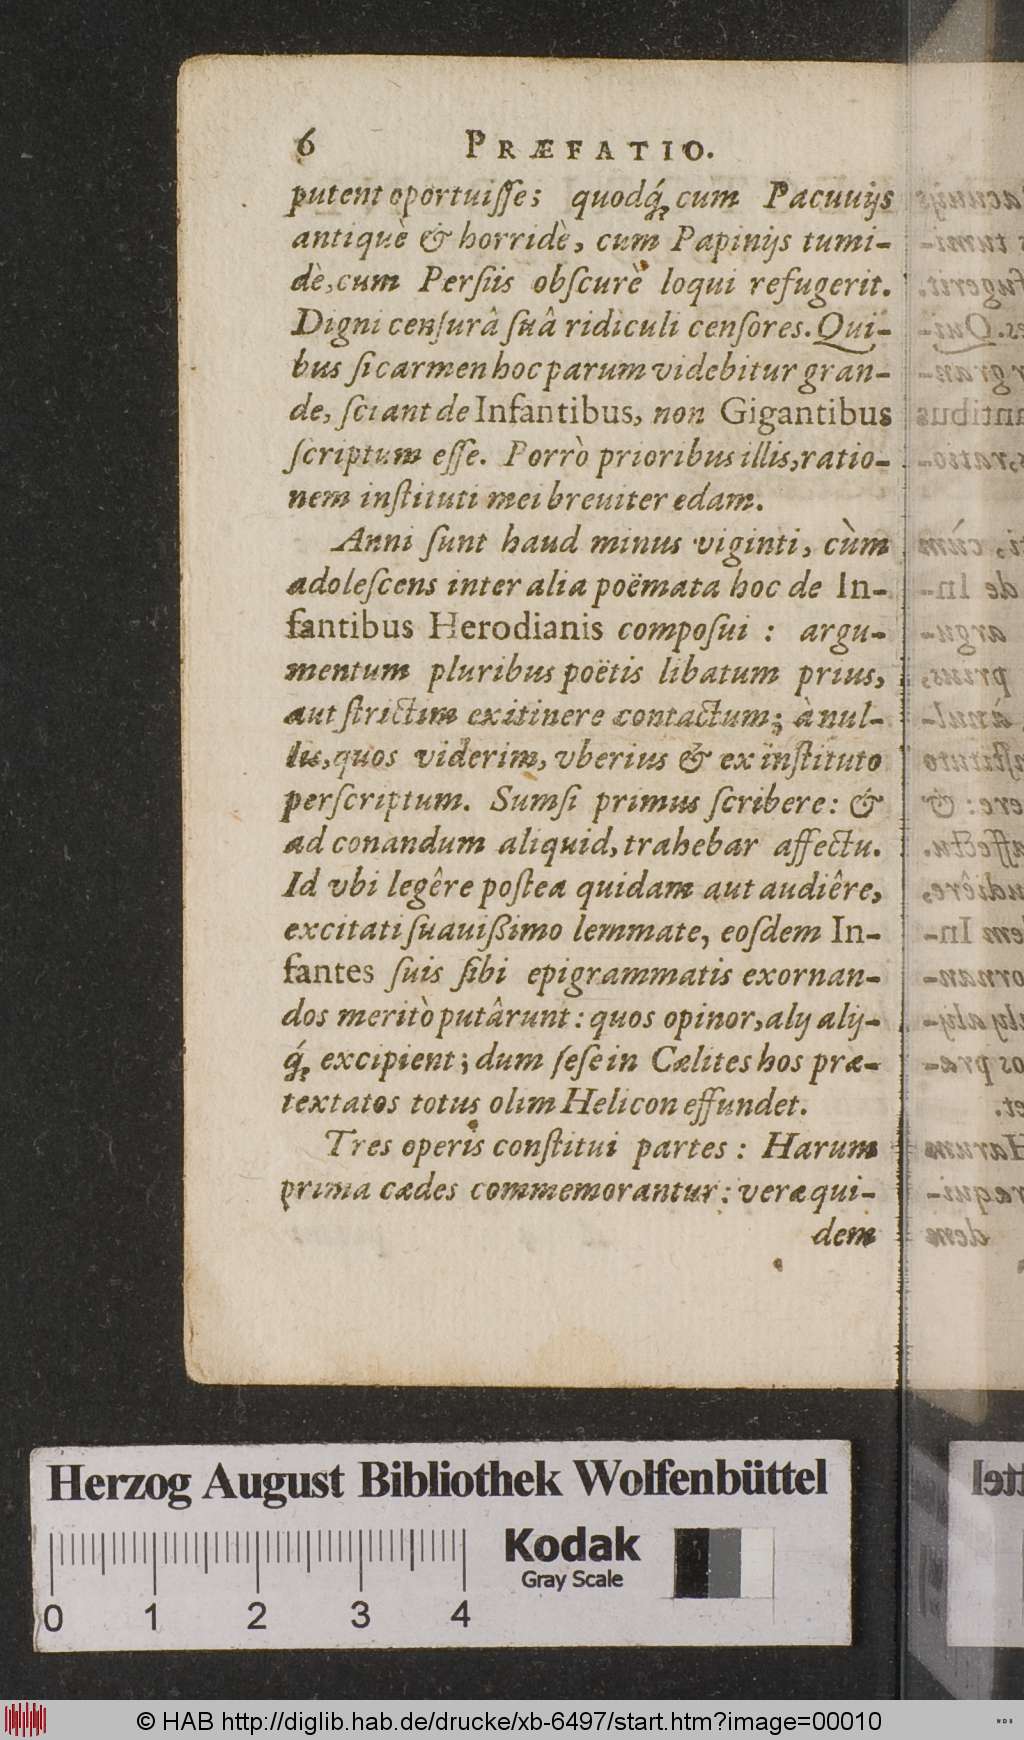 6 PRÆFATIO.
putent oportuiſſe; quodq́; cum Pacuuijs
antiquè & horridè, cum Papinijs tumi-
dè, cum Perſiis obſcurè loqui refugerit.
Digni cenſurâ ſuâ ridiculi cenſores. Qui-
bus ſi carmen hoc parum videbitur gran-
de, ſciant de Infantibus, non Gigantibus
ſcriptum eſſe. Porrò prioribus illis, ratio-
nem inſtituti mei breuiter edam.
Anni ſunt haud minus viginti, cùm
adoleſcens inter alia poëmata hoc de In-
fantibus Herodianis compoſui : argu-
mentum pluribus poëtis libatum prius,
aut ſtrictim ex itinere contactum; à nul-
lis, quos viderim, vberius & ex inſtituto
perſcriptum. Sumſi primus ſcribere: &
ad conandum aliquid, trahebar affectu.
Id vbi legêre poſtea quidam aut audiêre,
excitati ſuauißimo lemmate, eoſdem In-
fantes ſuis ſibi epigrammatis exornan-
dos meritò putârunt : quos opinor, alij alij-
q́; excipient; dum ſeſe in Cælites hos præ-
textatos totus olim Helicon effundet.
Tres operis conſtitui partes : Harum
prima cædes commemorantur: veræ qui-
dem
Herzog August Bibliothek Wolfenbüttel
Kodak
Gray Scale
0 1 2 3 4
© HAB http://diglib.hab.de/drucke/xb-6497/start.htm?image=00010